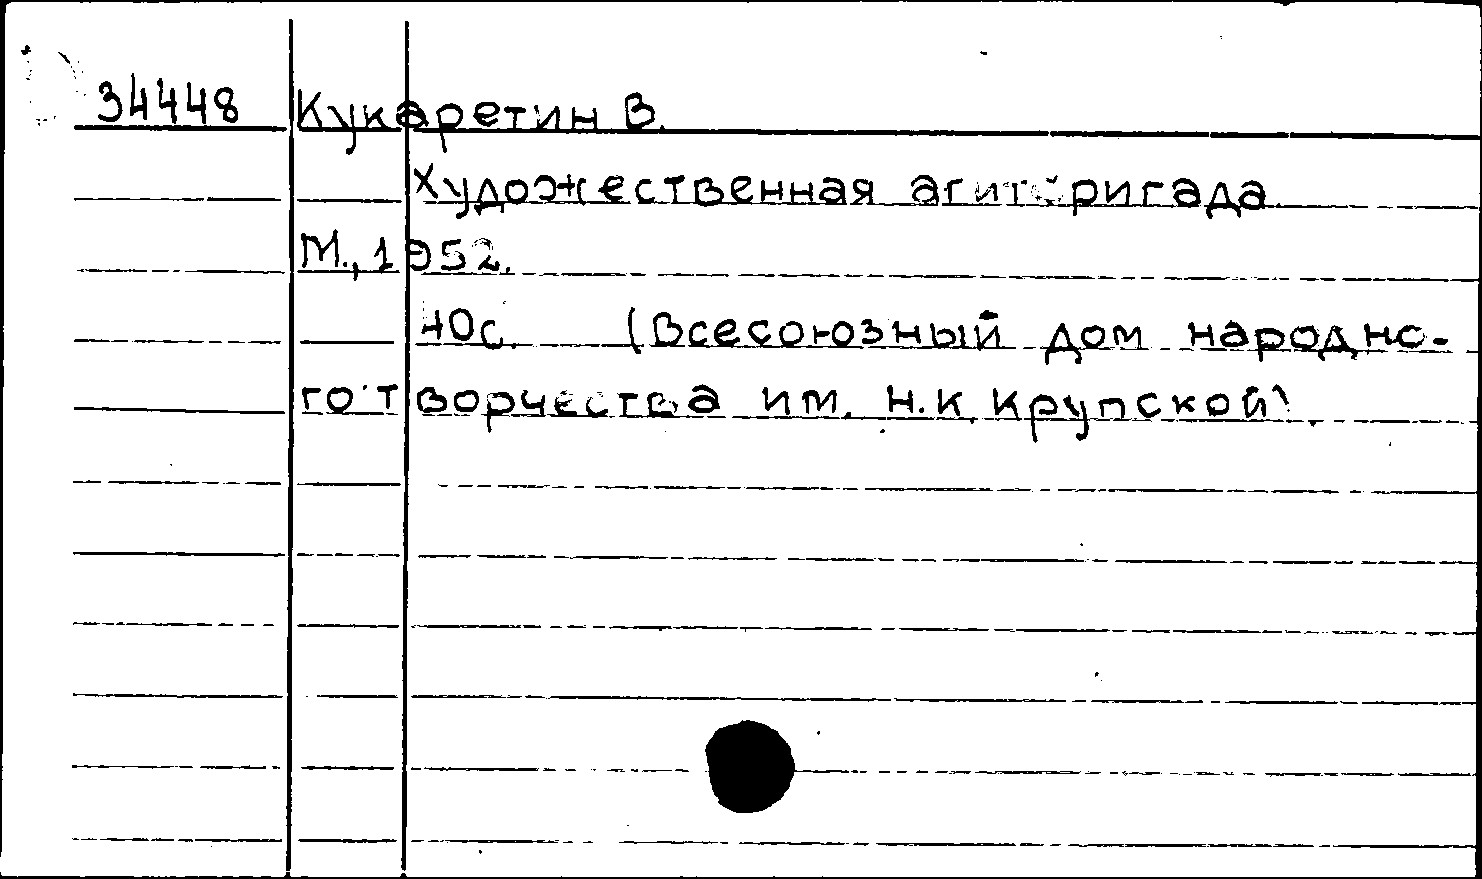 34448 Кукаретин В.
Художественная агитбригада
М., 1952.
40с. (Всесоюзный дом народно-
го творчества им. Н.К. Крупской).